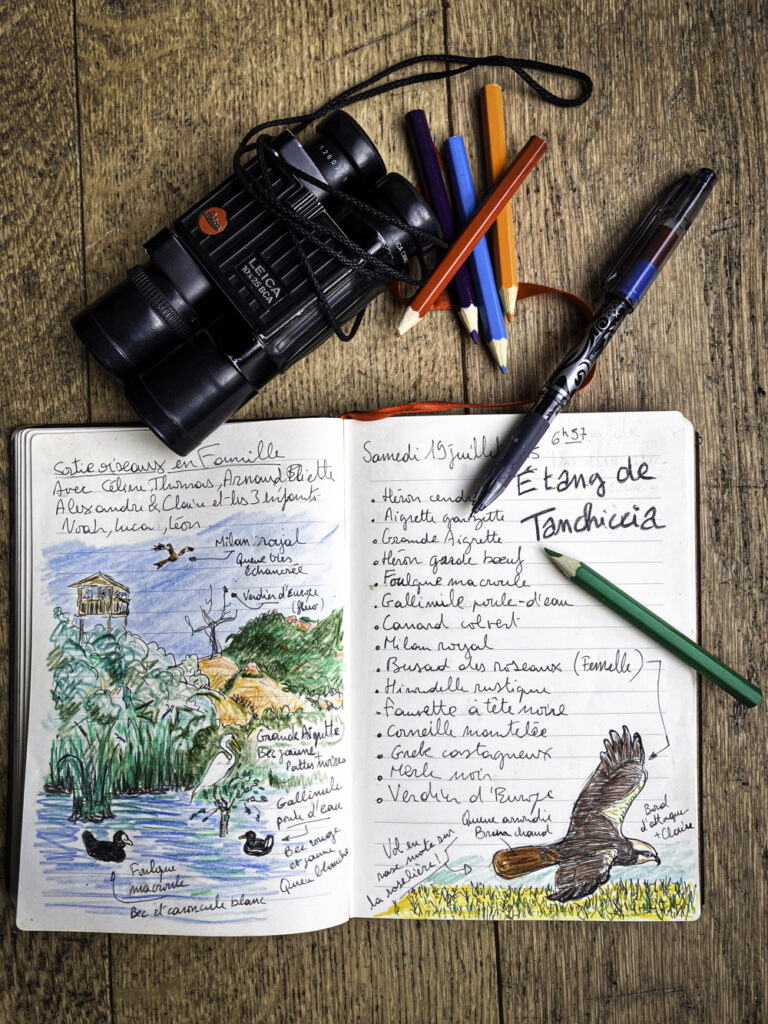 1260
LEICA
10x25 BCA
LEICA
Sortie oiseaux en Famille
Avec Céline, Thomas, Arnaud, Eliette
Alexandri & Claire et les 3 enfants
Noah, Luca, Léon
Milan royal
Queue très
échancrée
Verdier d'Europe
Grande Aigrette
Bec jaune +
Pattes noires
Gallinule
poule d'eau
Bec rouge
et jaune
Queue blanche
Foulque
macroule
Bec et caroncule blanc
Samedi 19 juillet
6h57
Étang de
Tanchiccia
Héron cendré
Aigrette garzette
Grande Aigrette
Héron garde bœuf
Foulque macroule
Gallinule poule-d'eau
Canard colvert
Milan royal
Busard des roseaux (Femelle)
Hirondelle rustique
Fauvette à tête noire
Corneille mantelée
Grèbe castagneux
Merle noir
Verdier d'Europe
Queue arrondie
Brun chaud
Bord
d'attaque
+ Claire
Vol en
rase motte sur
la roselière !